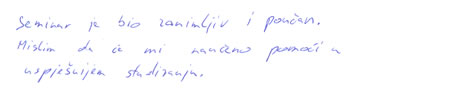 Seminar je bio zanimljiv i poučan.
Mislim da će mi naučeno pomoći u
uspješnijem studiranju.